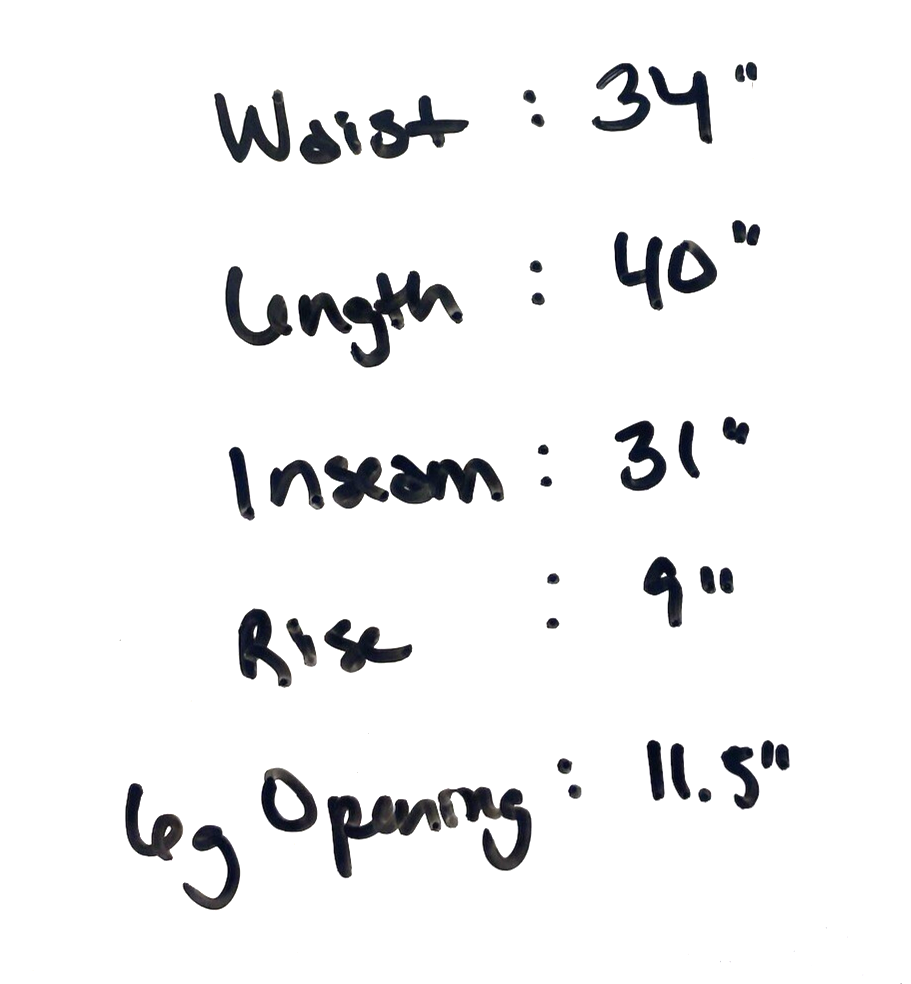 Waist : 34"
Length : 40"
Inseam : 31"
Rise : 9"
Leg Opening : 11.5"